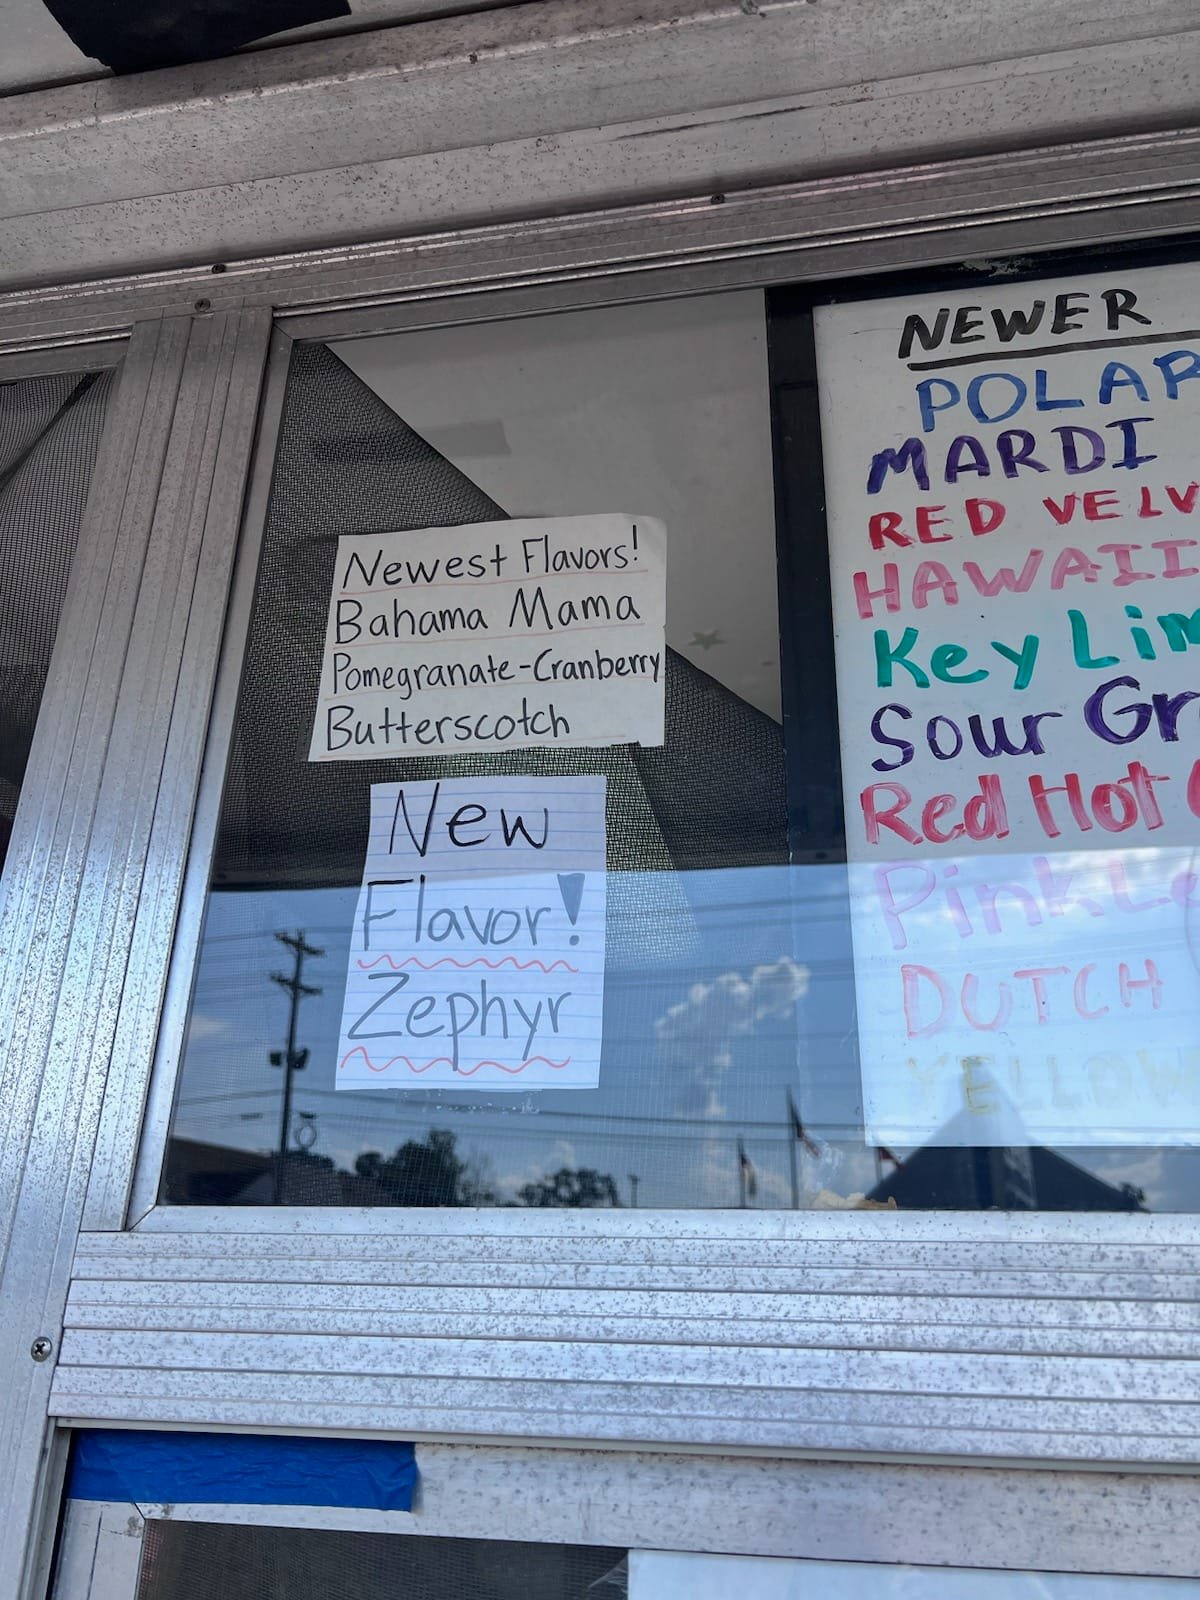 Newest Flavors!
Bahama Mama
Pomegranate-Cranberry
Butterscotch
New
Flavor!
Zephyr
NEWER
POLAR
MARDI
RED VELV
HAWAII
Key Lim
Sour Gr
Red Hot
Pink Le
DUTCH
YELLOW